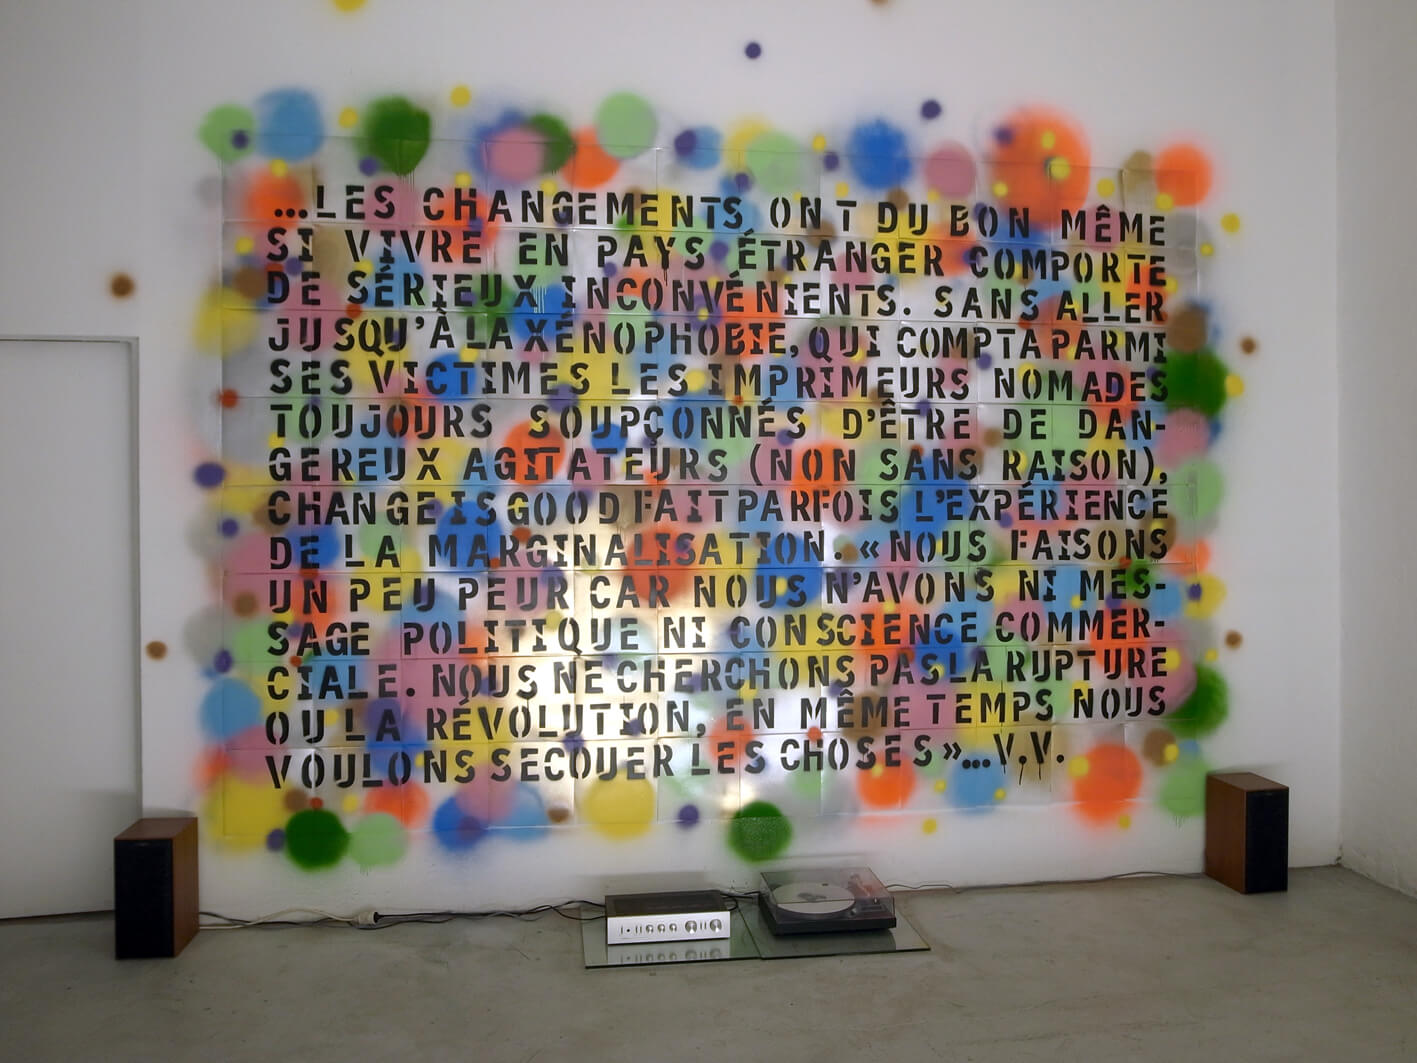 ...LES CHANGEMENTS ONT DU BON MÊME
SI VIVRE EN PAYS ÉTRANGER COMPORTE
DE SÉRIEUX INCONVÉNIENTS. SANS ALLER
JUSQU'À LA XÉNOPHOBIE, QUI COMPTA PARMI
SES VICTIMES LES IMPRIMEURS NOMADES
TOUJOURS SOUPÇONNÉS D'ÊTRE DE DAN-
GEREUX AGITATEURS (NON SANS RAISON),
CHANGE IS GOOD FAIT PARFOIS L'EXPÉRIENCE
DE LA MARGINALISATION. «NOUS FAISONS
UN PEU PEUR CAR NOUS N'AVONS NI MES-
SAGE POLITIQUE NI CONSCIENCE COMMER-
CIALE. NOUS NE CHERCHONS PAS LA RUPTURE
OU LA RÉVOLUTION, EN MÊME TEMPS NOUS
VOULONS SECOUER LES CHOSES»...V.V.